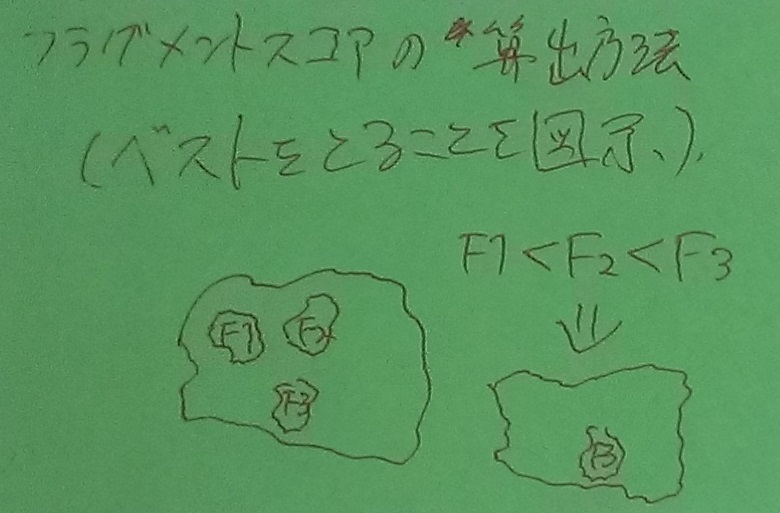 フラグメントスコアの算出方法
(ベストをとることを図示、).
F1<F2<F3
F1
F2
F3